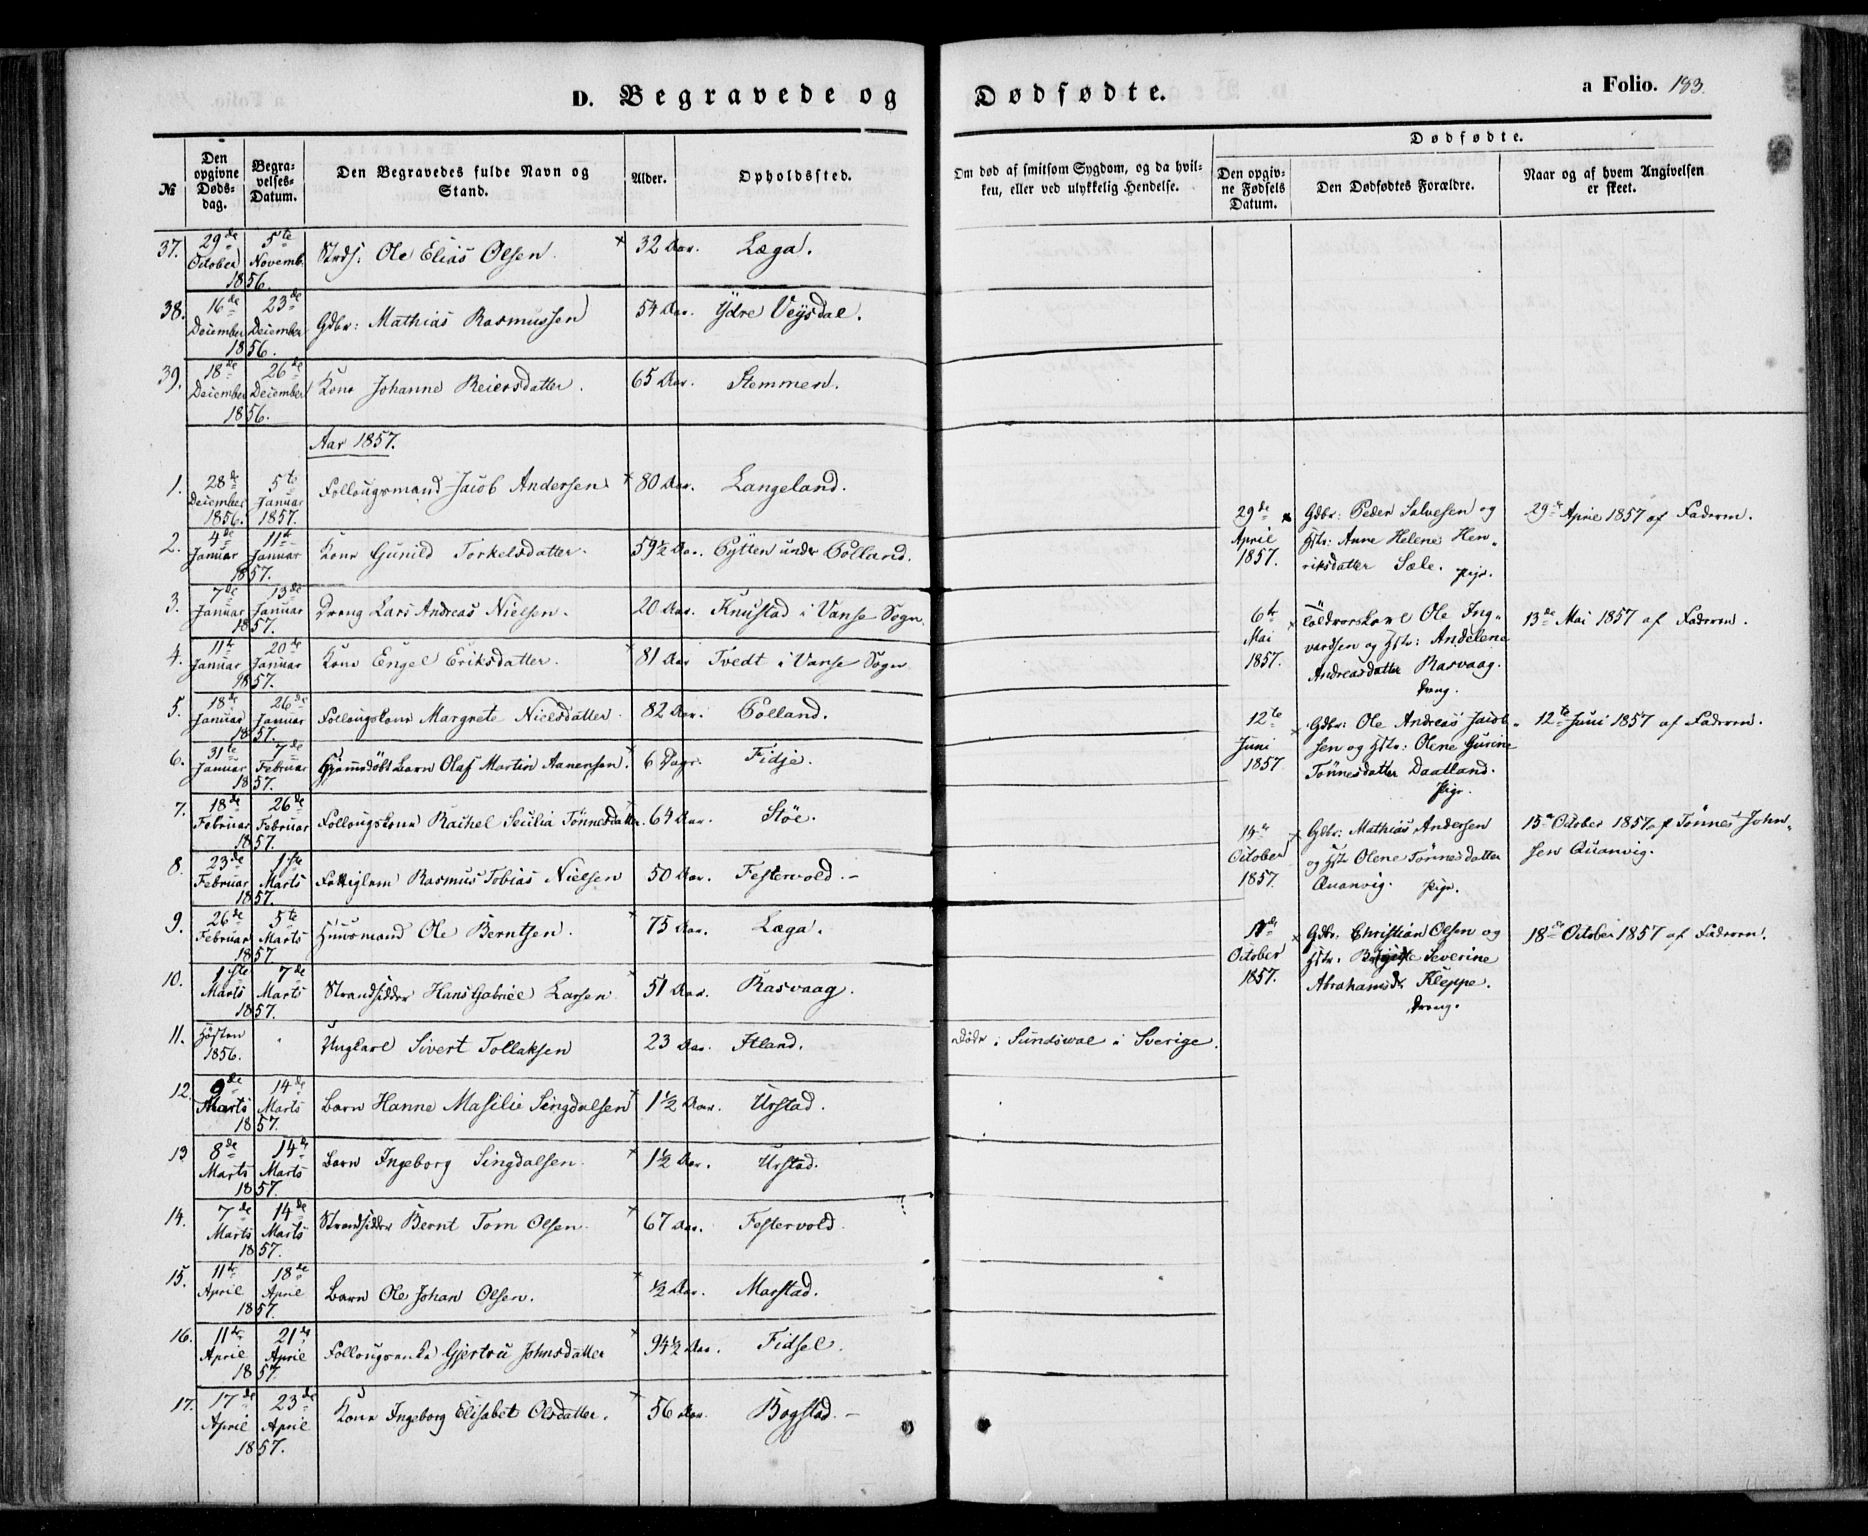 D. Begravede og Dødfødte.
a Folio. 183.
№
Den opgivne Døds-dag.
Begra-velses-Datum.
Den Begravedes fulde Navn og Stand.
Alder.
Opholdssted.
Om død af smitsom Sygdom, og da hvil-
ken, eller ved ulykkelig Hendelse.
Dødfødte.
Den opgiv-ne Fødsels Datum.
Den Dødfødtes Forældre.
Naar og af hvem Angivelsen er skeet.
37. 29de October 5te Novemb. 1856. Strds: Ole Elias Olsen. 32 Aar. Læga.
38. 16de December 23de December 1856. Gdbr: Mathias Rasmussen 54 Aar. Ydre Veysdal.
39. 18de December 26de December 1856. Kone Johanne Reiersdatter. 65 Aar. Stemmen.
Aar 1857.
1. 28de December 1856. 5te Januar 1857. Follougsmand Jacob Andersen 80 Aar. Langeland.
2. 4de Januar 11te Januar 1857. Kone Gunild Torkelsdatter. 59½ Aar. Pytten under Polland.
3. 7de Januar 13de Januar 1857. Dreng Lars Andreas Nielsen. 20 Aar. Knustad i Vanse Sogn.
4. 11te Januar 20de Januar 1857. Kone Engel Eriksdatter. 81 Aar Tvedt i Vanse Sogn
5. 18de Januar 26de Januar 1857. Follougskone Margrete Nielsdatter. 82 Aar. Polland.
6. 31te Januar 7de Februar 1857. Hjemmedøbt Barn Olaf Martin Aanensen. 6 Dage. Fidje.
7. 18de Februar 26de Februar 1857. Follougskone Rachel Secilia Tønnesdatter. 64 Aar. Støe.
8. 23de Februar 1ste Marts 1857. Fattiglem Rasmus Tobias Nielsen 50 Aar. Festervold.-
9. 26de Februar 5te Marts 1857 Huusmand Ole Berntsen. 75 Aar. Læga.
10. 1ste Marts 7de Marts 1857. Strandsidder Hans Gabriel Larsen 51 Aar. Rasvaag.
11. Høsten 1856. " Ungkarl Sivert Tollaksen 23 Aar. Itland. Døde i Sundswal i Sverige.
12. 9de Marts 14de Marts 1857. Barn Hanne Masilie Singdalsen 1½ Aar. Urstad.
13 8de Marts 14de Marts 1857. Barn Ingeborg Singdalsen. 1½ Aar. Urstad.
14. 7de Marts 14de Marts 1857. Strandsidder Bernt Tom Olsen 67 Aar. Festervold.
15. 11te April 18de April 1857. Barn Ole Johan Olsen. ½ Aar. Marstad.
16. 11te April 21de April 1857. Follougsenke Gjertru Johnsdatter 94½ Aar. Fidsel.
17. 17de April 23de April 1857. Kone Ingeborg Elisabet Olsdatter. 56 Aar. Bogstad.-
29de April 1857. Gdbr: Peder Salvesen og
Hstr: Anne Helene Hen-
riksdatter Sæle. Pige.
29de April 1857 af Faderen.
6te Mai 1857. Ole Ing-
vardsen og Hstr: Andelene
Andreasdatter Rasvaag.
Dreng.
13de Mai 1857 af Faderen.
12te Juni 1857 Gdbr: Ole Andreas Jacob-
sen og Hstr: Olene Gurine
Tønnesdatter Daatland.
Pige.
12te Juni 1857 af Faderen.
October 1857. Gdbr: Mathias Andersen
og Hstr Olene Tønnesdatter
Quanvig. Pige.
15de October 1857 af Tønnes John-
sen Quanvig.
October 1857. Gdbr: Christian Olsen og
Hstr. Severine
Abrahamsdr Kleppe.
Dreng.
18de October 1857 af Faderen.